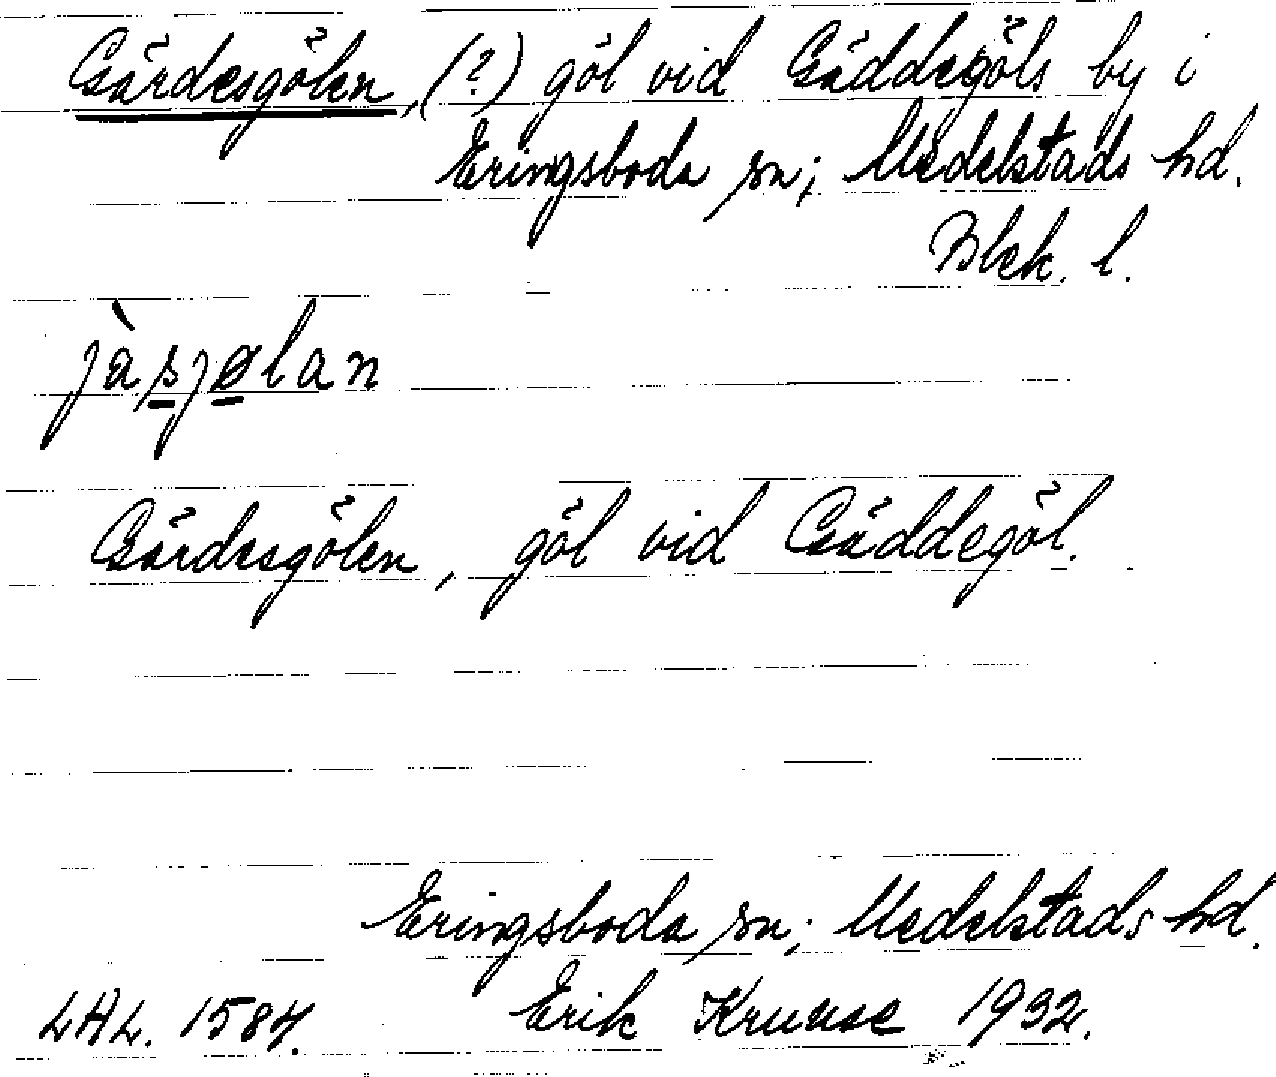 Gärdesgölen, (?) göl vid Gäddegöls by i
Eringsboda sn; Medelstads hd.
Blek. l.
jàsjølan
Gärdesgölen, göl vid Gäddegöl.
Eringsboda sn; Medelstads hd.
LAL. 1584. Erik Kruuse 1932.